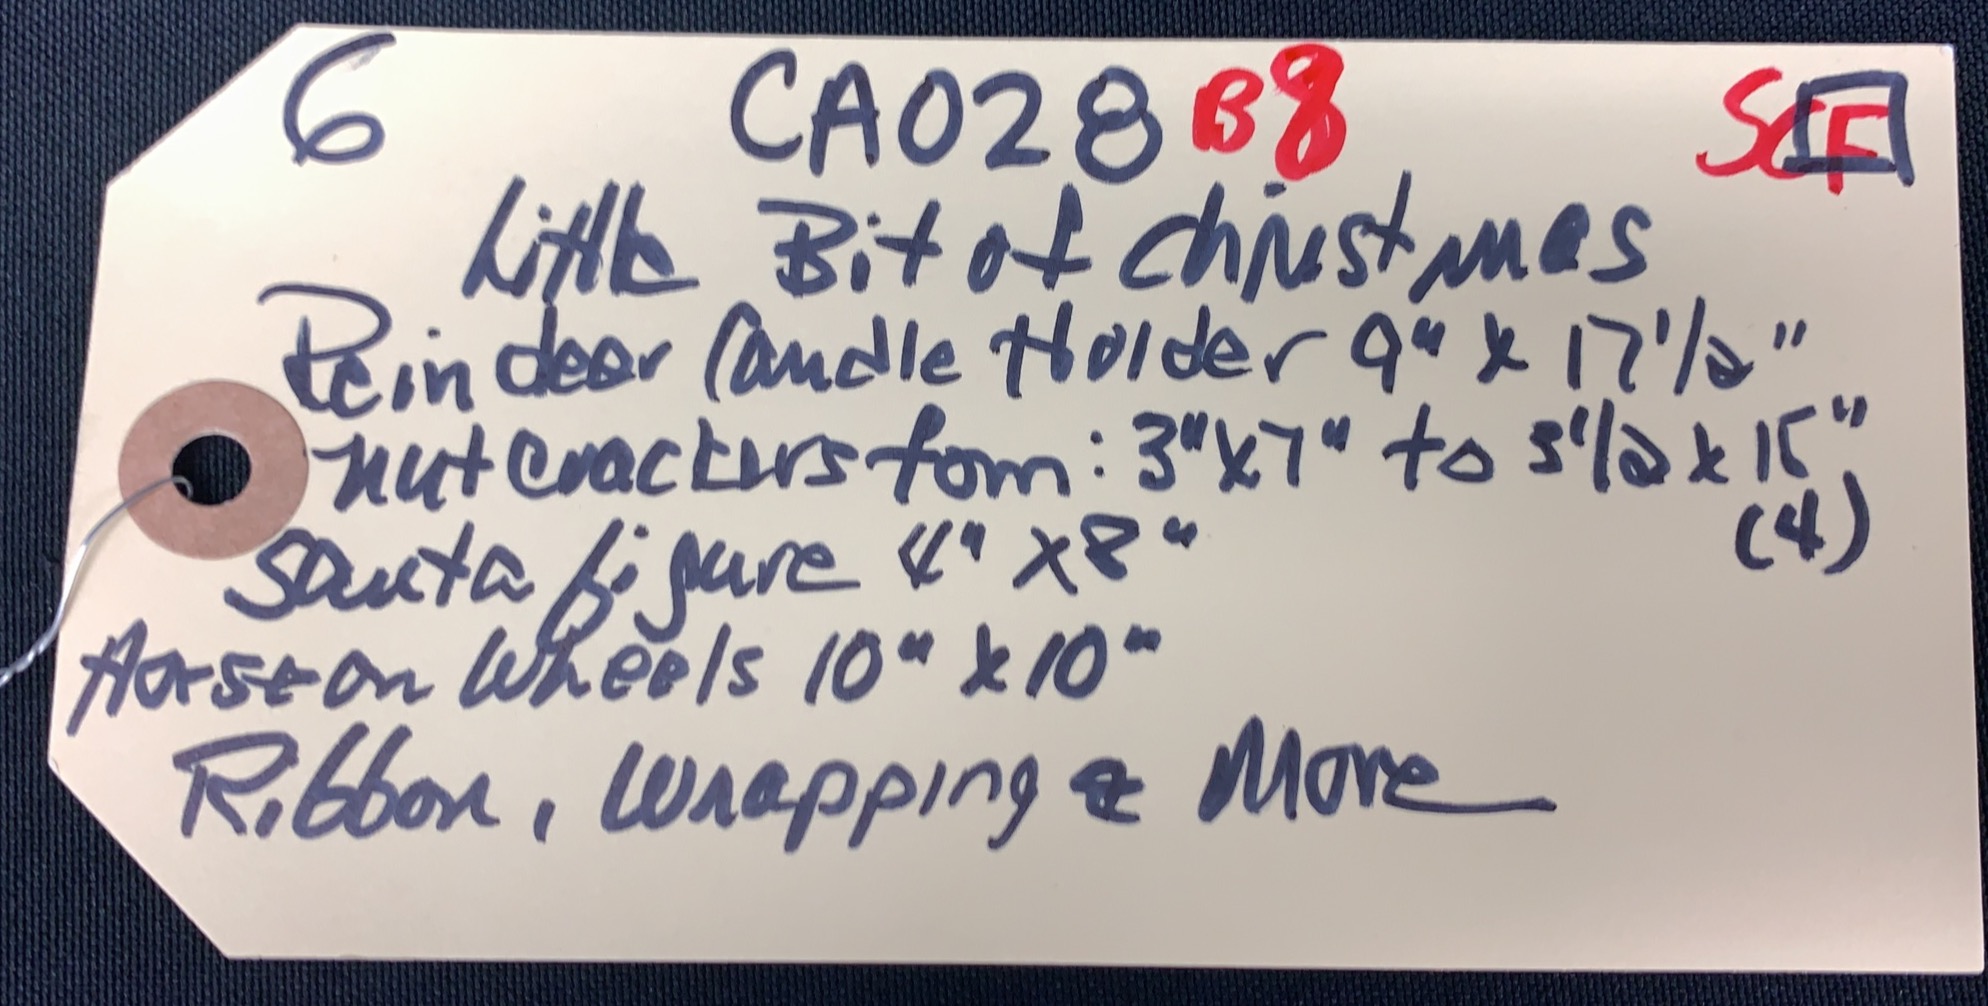 6 CA028 B8 SCF
Little Bit of Christmas
Reindeer Candle Holder 9" x 17 1/2"
nutcrackers form: 3"x7" to 5 1/2 x 15"
(4)
Santa figure 4" x 8"
Horse on Wheels 10" x 10"
Ribbon, Wrapping & More